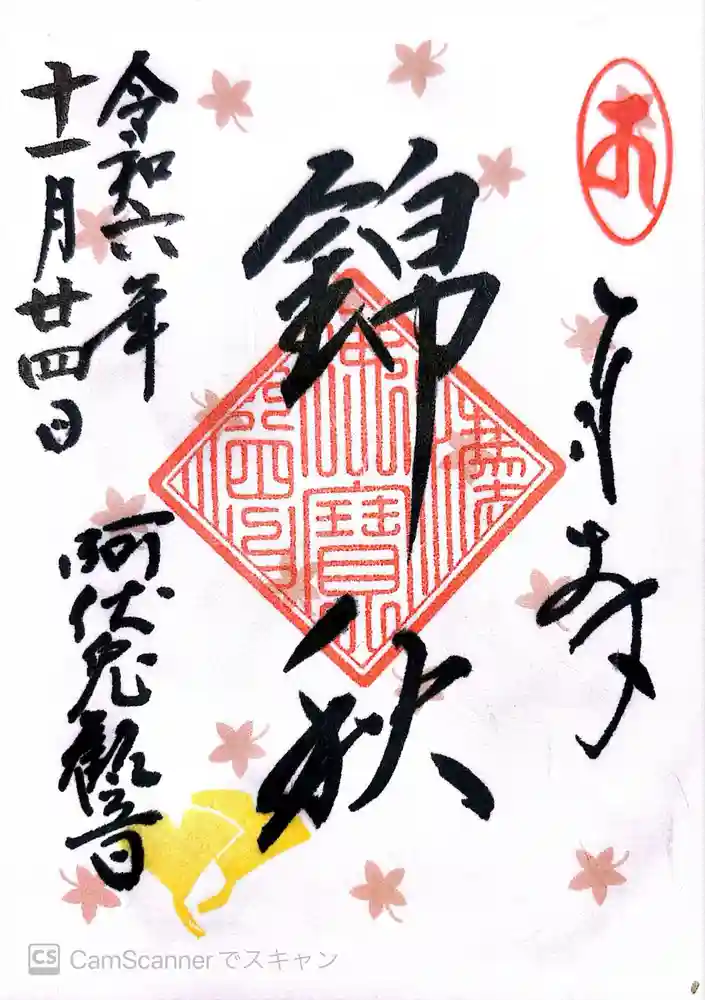 奉拝
錦秋
令和六年
十一月廿四日
阿伏兎観音
CS CamScannerでスキャン